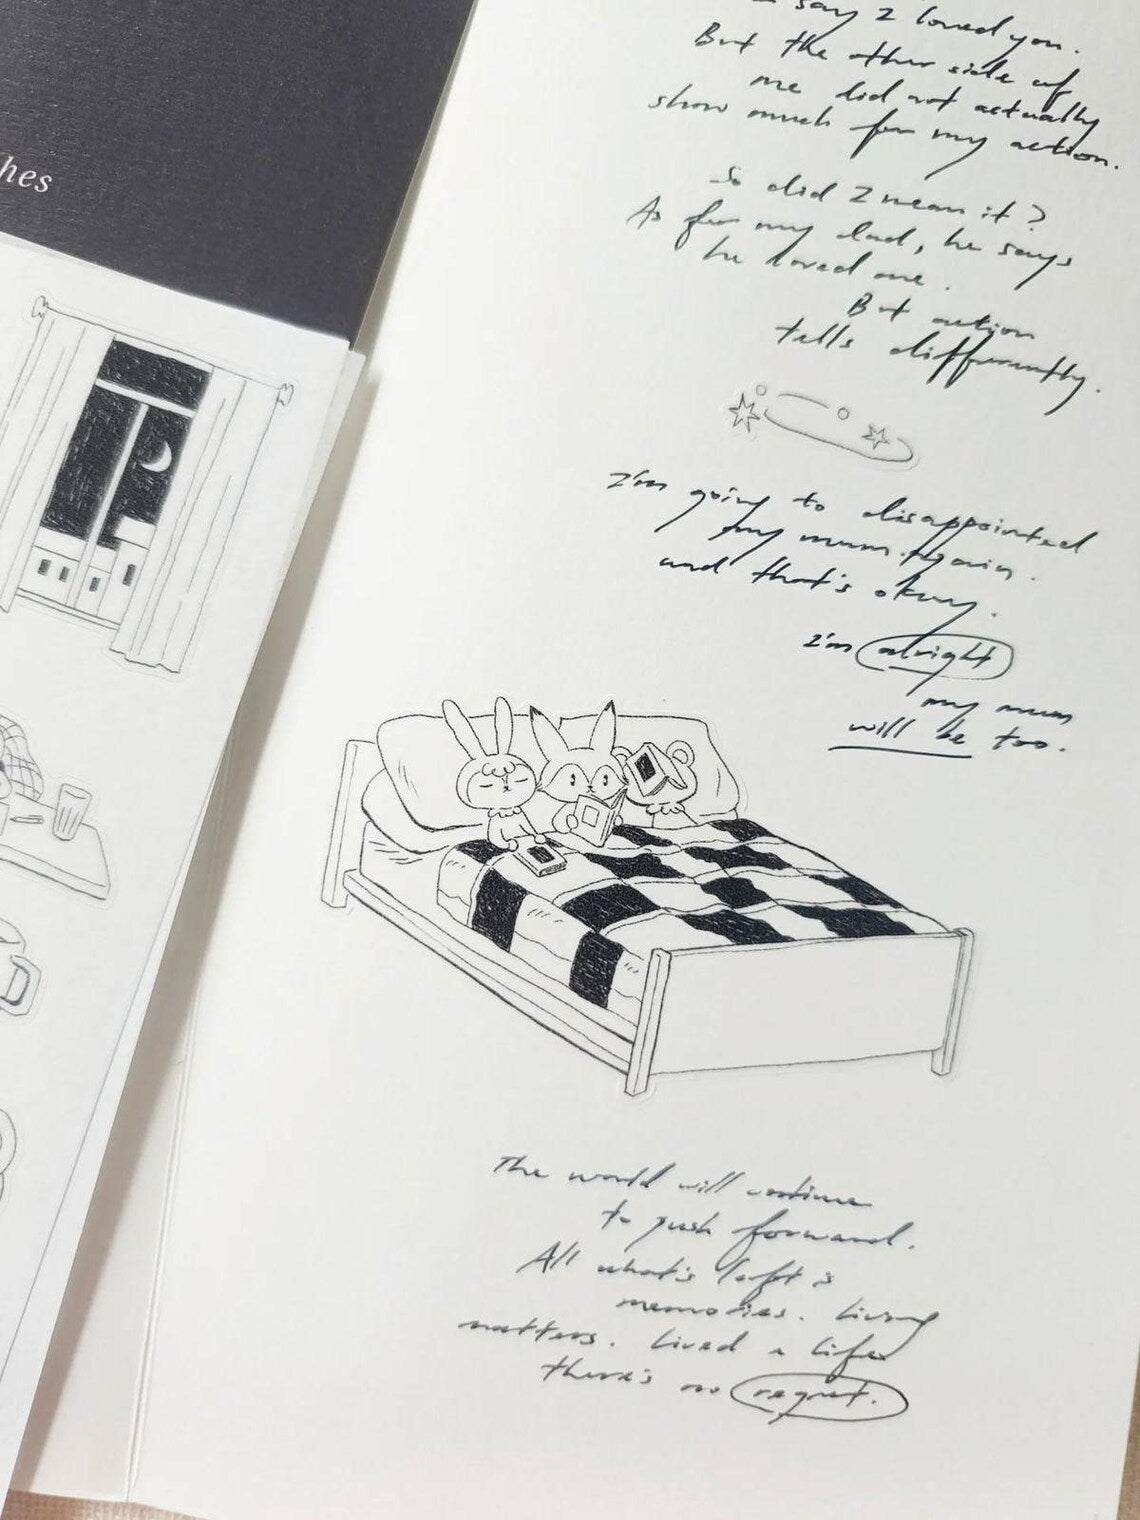 hes
say I loved you.
But the other side of
me did not actually
show much for my action.
So did I mean it?
As for my dad, he says
he loved me.
But action
tells differently.
I'm going to disappointed
my mum again.
and that's okay.
I'm alright
my mum
will be too.
The world will continue
to push forward.
All what's left is
memories. Living
matters. Lived a life
there's no regret.